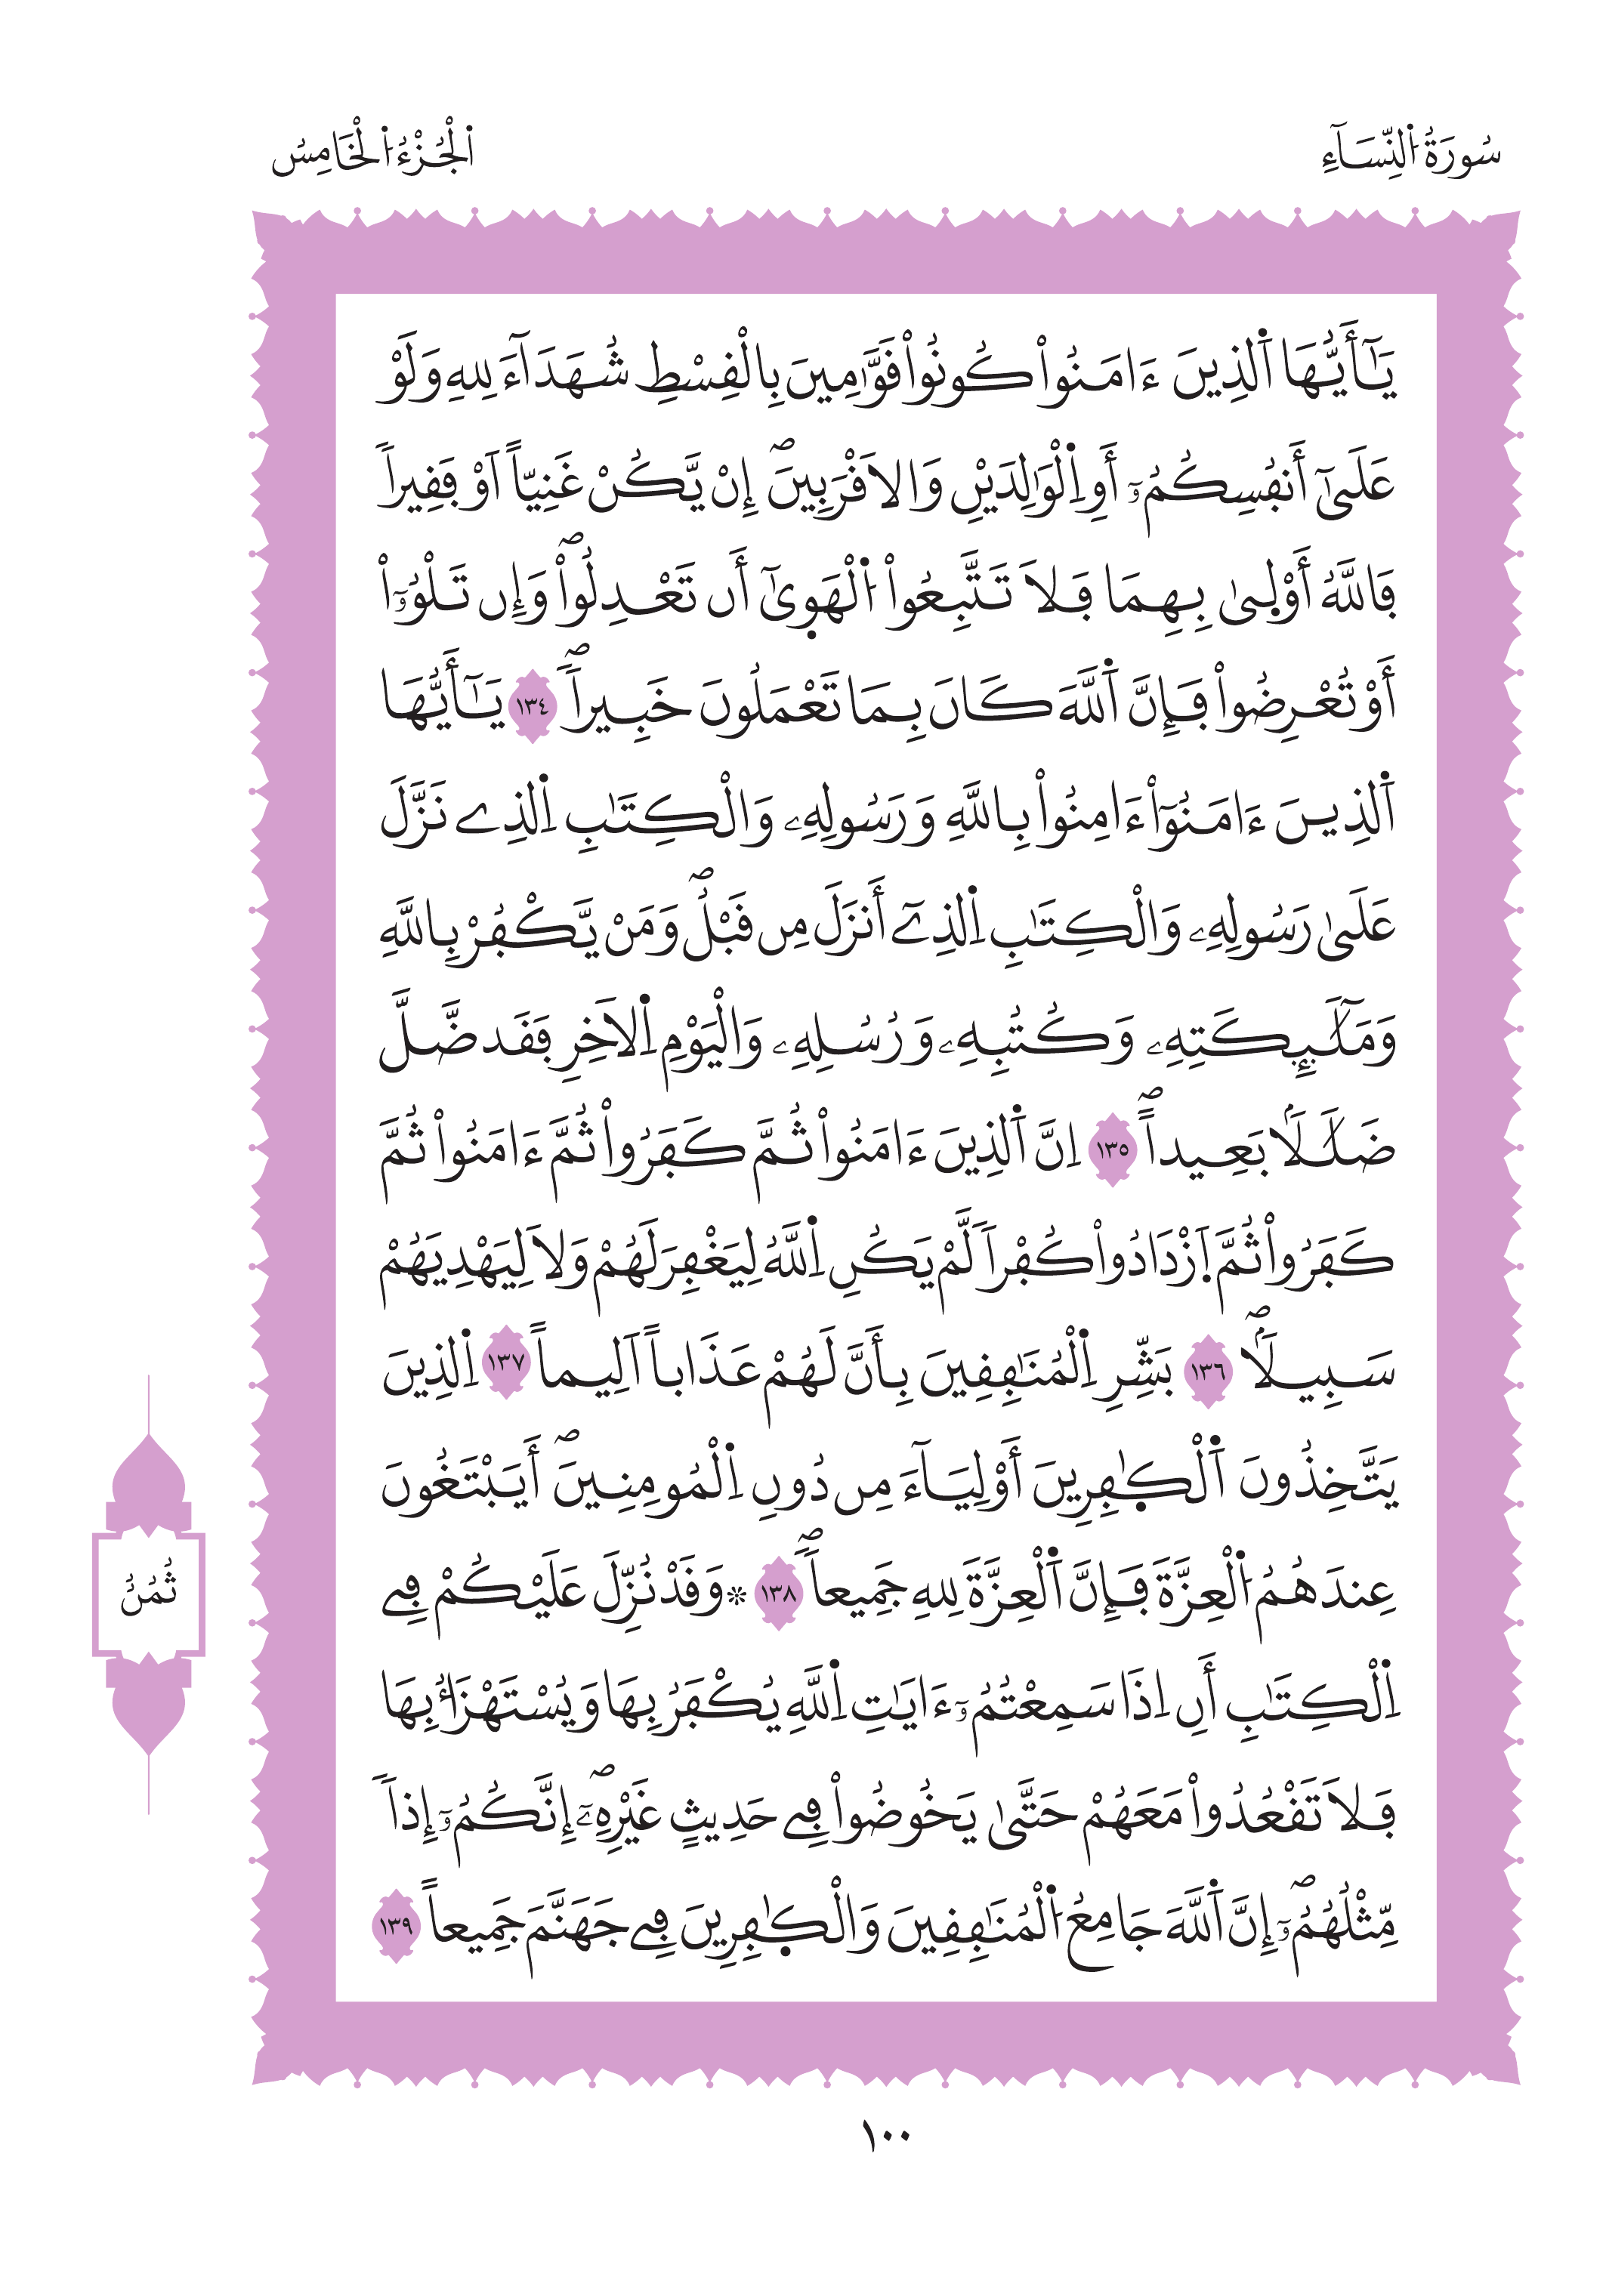 سُورَةُ النِّسَآءِ
اَلْجُزْءُ الْخَامِسُ
يَٰٓأَيُّهَا اَ۬لذِينَ ءَامَنُواْ كُونُواْ قَوَّٰمِينَ بِالْقِسْطِ شُهَدَآءَ لِلهِ وَلَوْ
عَلَىٰٓ أَنفُسِكُمُۥٓ أَوِ اِ۬لْوَٰلِدَيْنِ وَالَاقْرَبِينَۖ إِنْ يَّكُنْ غَنِيّاً اَوْ فَقِيراٗ
فَاللَّهُ أَوْلَىٰ بِهِمَا فَلَا تَتَّبِعُواْ اُ۬لْهَوِىٰٓ أَن تَعْدِلُواْۖ وَإِن تَلْوُۥٓاْ
أَوْ تُعْرِضُواْ فَإِنَّ اَ۬للَّهَ كَانَ بِمَا تَعْمَلُونَ خَبِيراٗۖ ١٣٤ يَٰٓأَيُّهَا
اَ۬لذِينَ ءَامَنُوٓاْ ءَامِنُواْ بِاللَّهِ وَرَسُولِهِۦ وَالْكِتَٰبِ اِ۬لذِے نَزَّلَ
عَلَىٰ رَسُولِهِۦ وَالْكِتَٰبِ اِ۬لذِےٓ أَنزَلَ مِن قَبْلُۖ وَمَنْ يَّكْفُرْ بِاللَّهِ
وَمَلَٰٓئِكَتِهِۦ وَكُتُبِهِۦ وَرُسُلِهِۦ وَالْيَوْمِ اِ۬لَاخِرِ فَقَد ضَّلَّ
ضَلَٰلَاۢ بَعِيداًۖ ١٣٥ اِنَّ اَ۬لذِينَ ءَامَنُواْ ثُمَّ كَفَرُواْ ثُمَّ ءَامَنُواْ ثُمَّ
كَفَرُواْ ثُمَّ اَ۪زْدَادُواْ كُفْراٗ لَّمْ يَكُنِ اِ۬للَّهُ لِيَغْفِرَ لَهُمْ وَلَا لِيَهْدِيَهُمْ
سَبِيلَاۢۖ ١٣٦ بَشِّرِ اِ۬لْمُنَٰفِقِينَ بِأَنَّ لَهُمْ عَذَاباً اَلِيماً ١٣٧ اِ۬لذِينَ
يَتَّخِذُونَ اَ۬لْكٰ۪فِرِينَ أَوْلِيَآءَ مِن دُونِ اِ۬لْمُومِنِينَۖ أَيَبْتَغُونَ
عِندَهُمُ اُ۬لْعِزَّةَ فَإِنَّ اَ۬لْعِزَّةَ لِلهِ جَمِيعاٗۖ ١٣٨ ۞ وَقَدْ نُزِّلَ عَلَيْكُمْ فِے
اِ۬لْكِتَٰبِ أَنِ اِذَا سَمِعْتُمُۥٓ ءَايَٰتِ اِ۬للَّهِ يُكْفَرُ بِهَا وَيُسْتَهْزَأُ بِهَا
فَلَا تَقْعُدُواْ مَعَهُمْ حَتَّىٰ يَخُوضُواْ فِے حَدِيثٍ غَيْرِهِۦٓۖ إِنَّكُمُۥٓ إِذاٗ
مِّثْلُهُمُۥٓۖ إِنَّ اَ۬للَّهَ جَامِعُ اُ۬لْمُنَٰفِقِينَ وَالْكٰ۪فِرِينَ فِے جَهَنَّمَ جَمِيعاً ١٣٩
ثُمُنُ
١٠٠